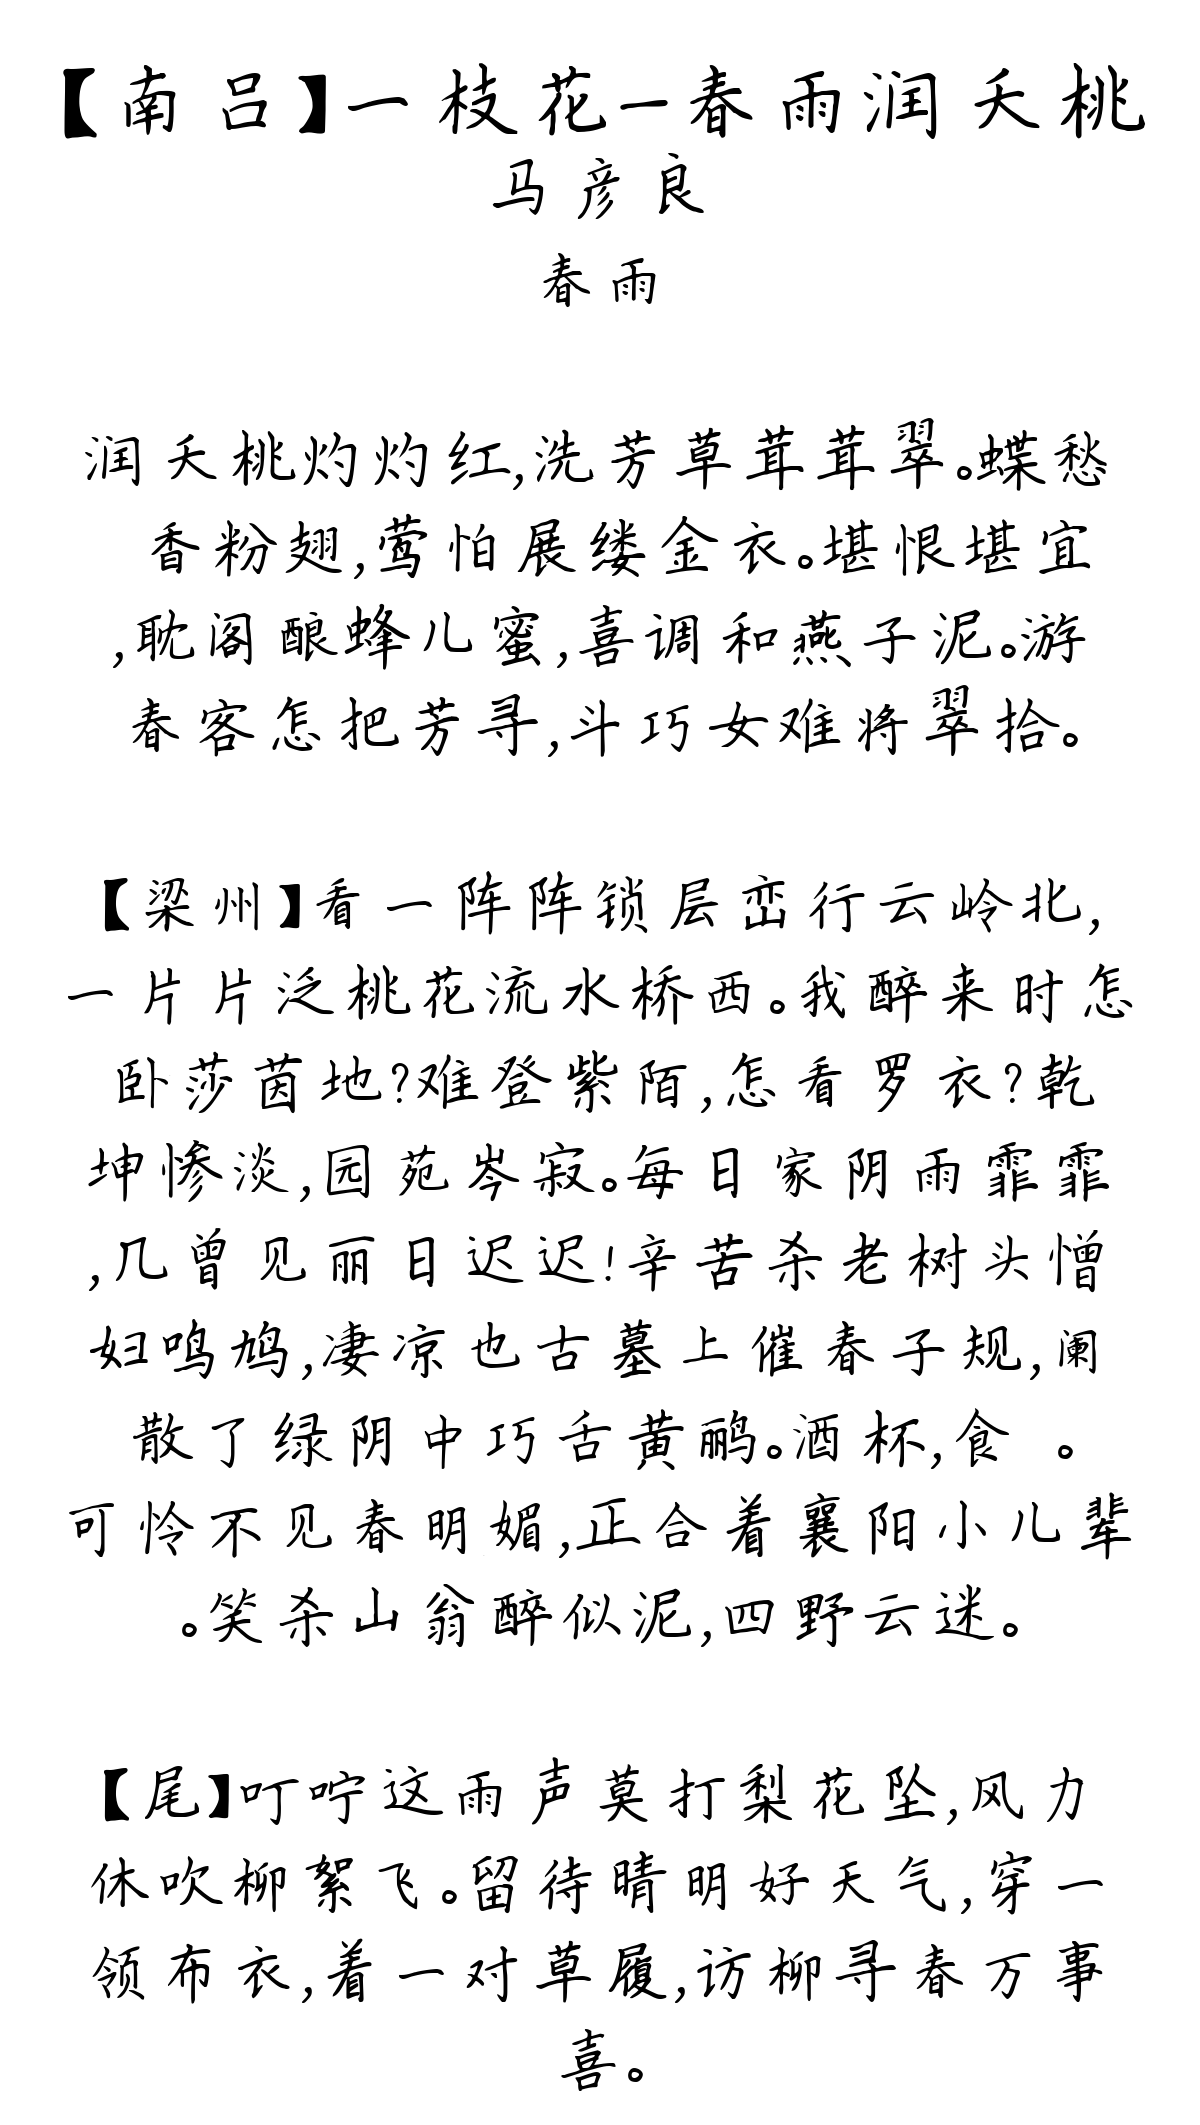 【南吕】一枝花-春雨润夭桃
马彦良
春雨
润夭桃灼灼红,洗芳草茸茸翠。蝶愁
香粉翅,莺怕展缕金衣。堪恨堪宜
,耽阁酿蜂儿蜜,喜调和燕子泥。游
春客怎把芳寻,斗巧女难将翠拾。
【梁州】看一阵阵锁层峦行云岭北,
一片片泛桃花流水桥西。我醉来时怎
卧莎茵地?难登紫陌,怎看罗衣?乾
坤惨淡,园苑岑寂。每日家阴雨霏霏
,几曾见丽日迟迟!辛苦杀老树头憎
妇鸣鸠,凄凉也古墓上催春子规,阑
散了绿阴中巧舌黄鹂。酒杯,食 。
可怜不见春明媚,正合着襄阳小儿辈
。笑杀山翁醉似泥,四野云迷。
【尾】叮咛这雨声莫打梨花坠,风力
休吹柳絮飞。留待晴明好天气,穿一
领布衣,着一对草履,访柳寻春万事
喜。